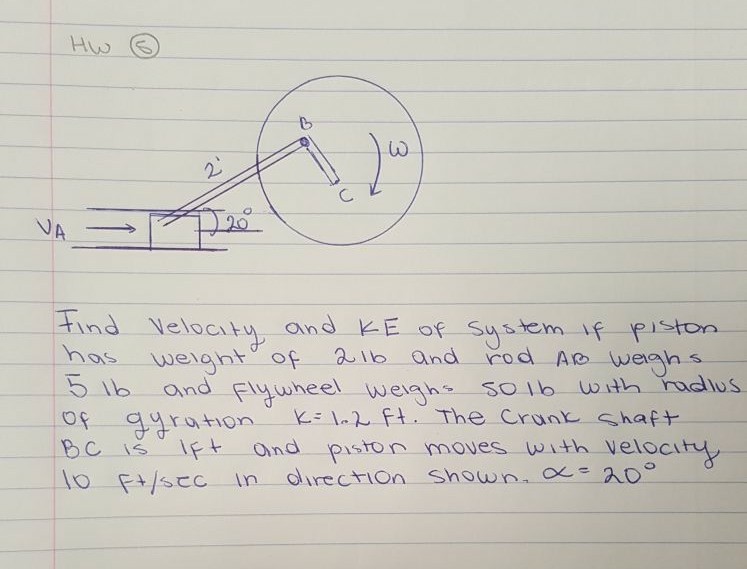 HW 5
B
ω
2'
C
VA
20°
Find Velocity and KE of system if piston
has weight of 2 lb and rod AB weighs
5 lb and flywheel weighs 50 lb with radius
of gyration K=1.2 ft. The Crank shaft
BC is 1ft and piston moves with velocity
10 ft/sec in direction shown. α= 20°